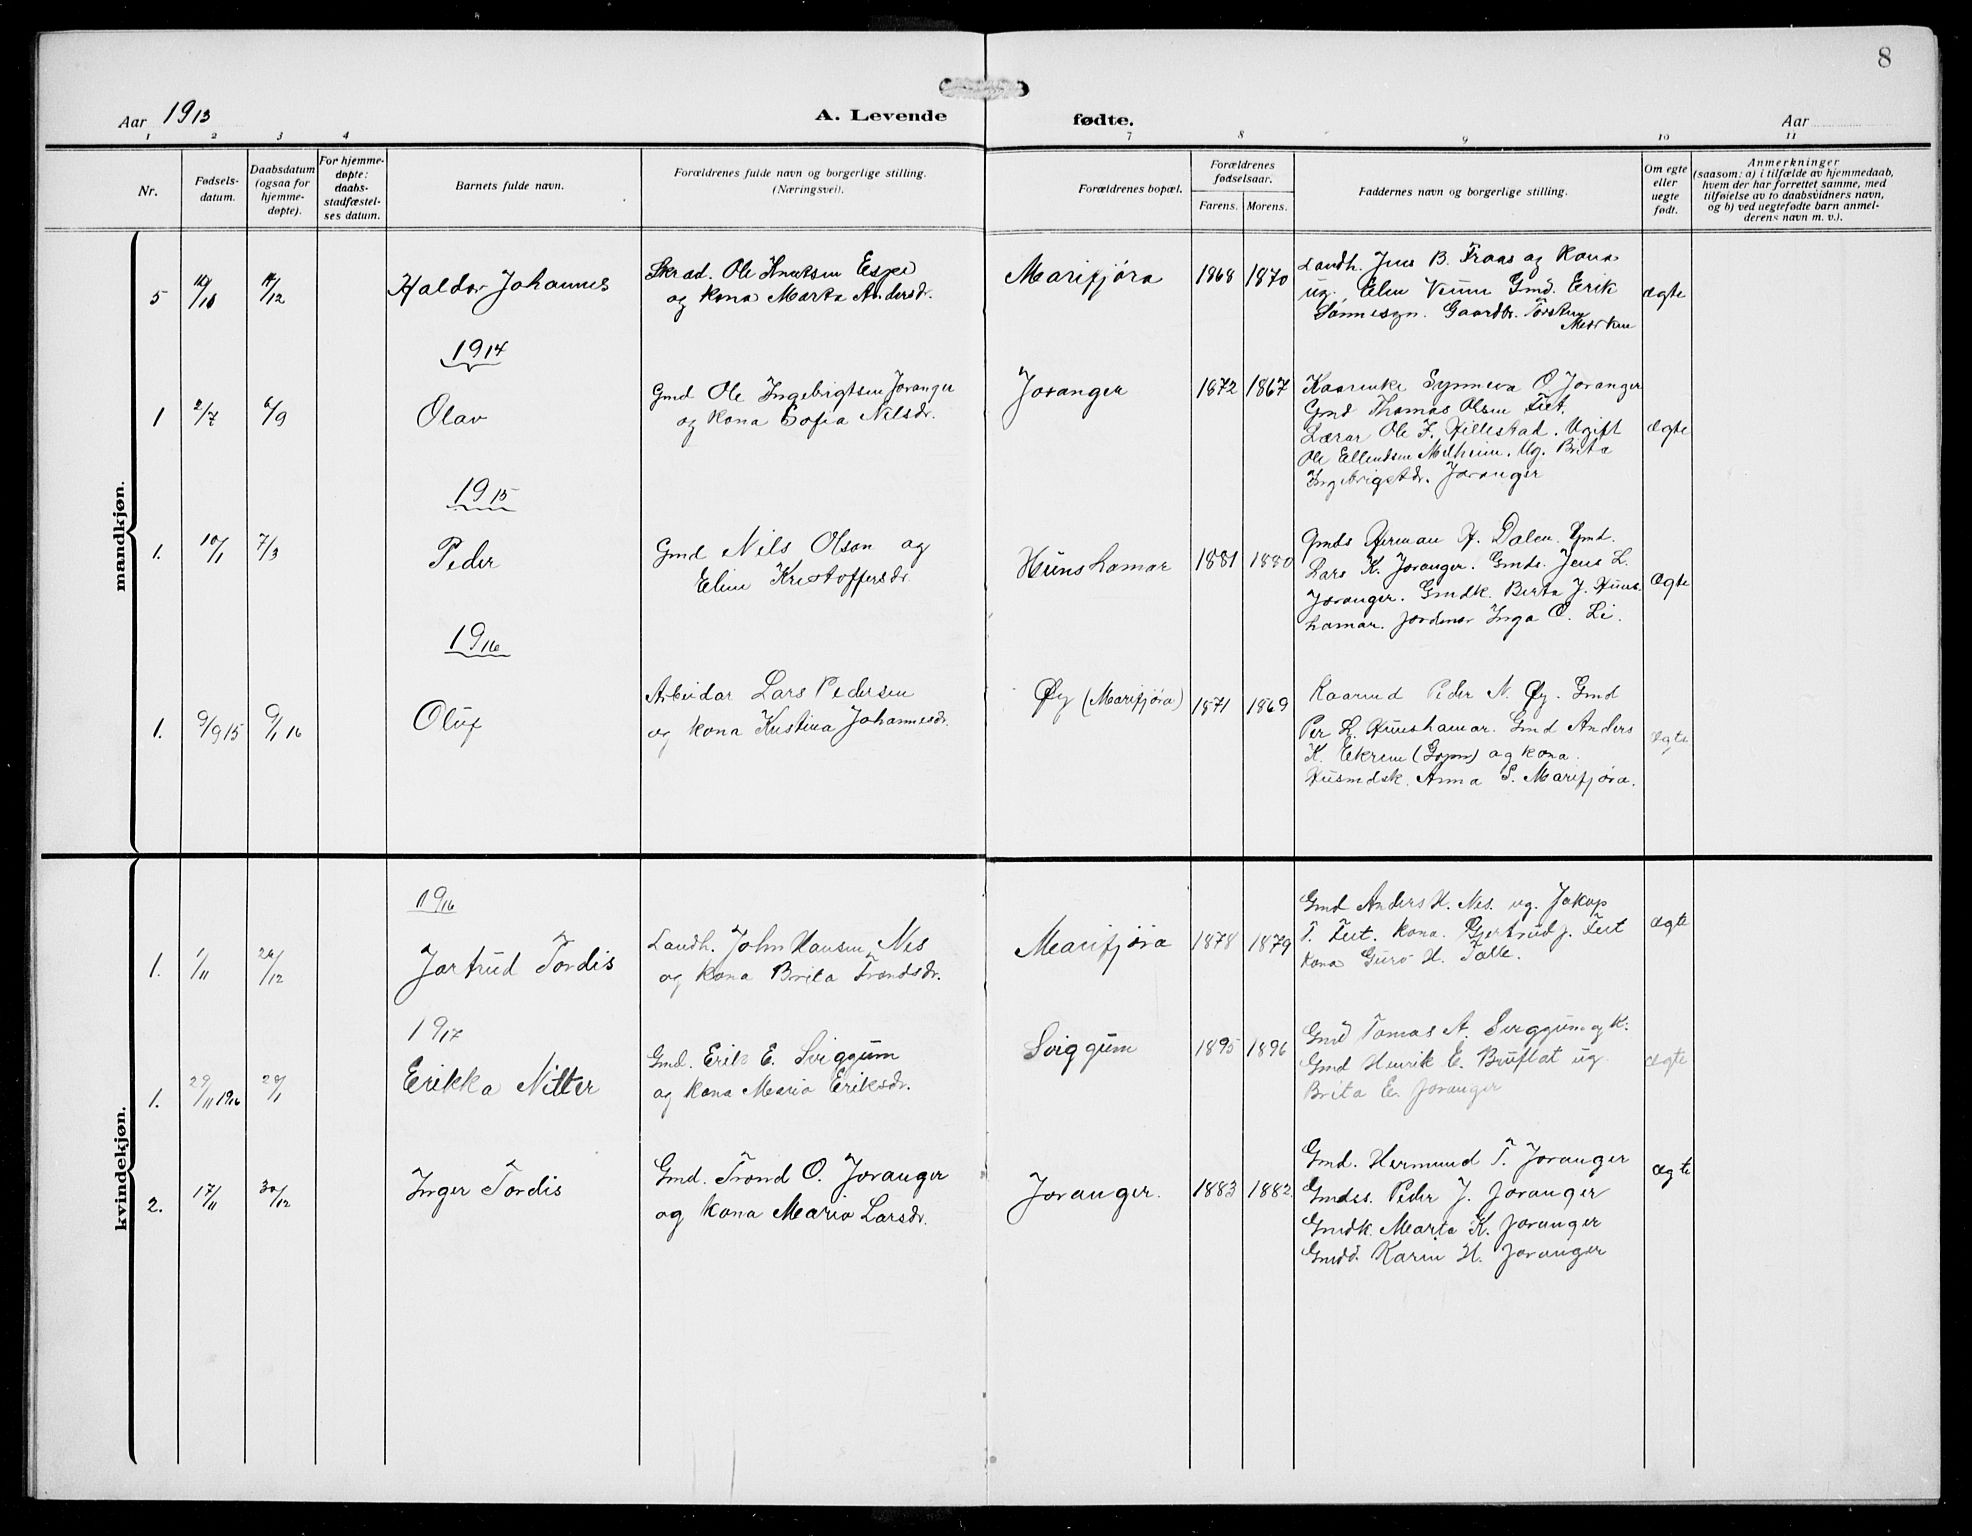 8
Aar 1913 A. Levende fødte. Aar
1 2 3 4 7 8 9 10 11
Nr.
Fødsels-
datum.
Daabsdatum
(ogsaa for
hjemme-
døpte).
For hjemme-
døpte:
daabs-
stadfæstel-
ses datum.
Barnets fulde navn.
Forældrenes fulde navn og borgerlige stilling.
(Næringsvei).
Forældrenes bopæl.
Forældrenes
fødselsaar.
Farens. Morens.
Faddernes navn og borgerlige stilling.
Om egte
eller
uegte
født.
Anmerkninger
(saasom: a) i tilfælde av hjemmedaab,
hvem der har forrettet samme, med
tilføielse av to daabsvidners navn,
og b) ved uegtefødte barn anmel-
derens navn m. v.).
mandkjøn.
5 /12 Haldor Johannes
Skrad. Ole Knutsen Espe
og kona Marta Andersdr.
Marifjøra 1868 1870
Landh. Jens B. Fraas og kona
ug. Elen Veum Gmd. Erik
Sønnesyn. Gaardbr. Torstein
ægte
1914
1 2/7 6/9 Olav
Gmd Ole Ingebrigtsen Joranger
og kona Sofia Nilsdr.
Joranger 1872 1867
Kaarenke Synneva O Joranger
Gmd Thomas Olsen Fet.
Lærar Ole F. Hillestad. Ugift
Ole Ellendsen Melheim. Ug. Brita
Ingebrigtsdr. Joranger
ægte
1915
1. 10/1 7/3 Peder
Gmd Nils Olson og
Eline Kristoffersdr.
Hunshamar 1881 1880
Gmds Herman H. Dalen. Gmd.
Lars K. Joranger. Gmds. Jens L.
Joranger. Gmdk. Berta J. Huns-
hamar. Jordmor Inga O. Li.
ægte
1916
1. 9/9 15 9/1 16 Oluf
Arbeidar Lars Pedersen
og kona Kristina Johannesdr.
Øy (Marifjøra) 1871 1869
Kaarmd Peder N. Øy. Gmd
Per L. Hunshamar. Gmd Anders
K. Eikrem (Gopn) og kona.
Husmdsk. Anna S. Marifjøra.
ægte
kvindekjøn.
1916
1. 1/11 26/12 Jortrud Tordis
Landh. John Hansen Nes
og kona Brita Trondsdr.
Marifjøra 1878 1879
Gmd Anders H. Nes. ug. Jakop
T. Fet. kona. Gjertrud J. Fet
kona Guro H. Talle.
ægte
1917
1. 29/11 1916 28/1 Erikka Nitter
Gmd. Erik E. Sviggum
og kona Maria Eriksdr.
Sviggum 1895 1896
Gmd Tomas A. Sviggum og k.
Gmd Henrik E. Bruflat ug.
Brita E. Joranger
ægte
2. 17/11 30/12 Inger Tordis
Gmd. Trond O. Joranger
og kona Maria Larsdr.
Joranger. 1883 1882
Gmd. Hermund T. Joranger
Gmds. Peder J. Joranger
Gmdk. Marta K. Joranger
Gmdd. Karin H. Joranger
ægte